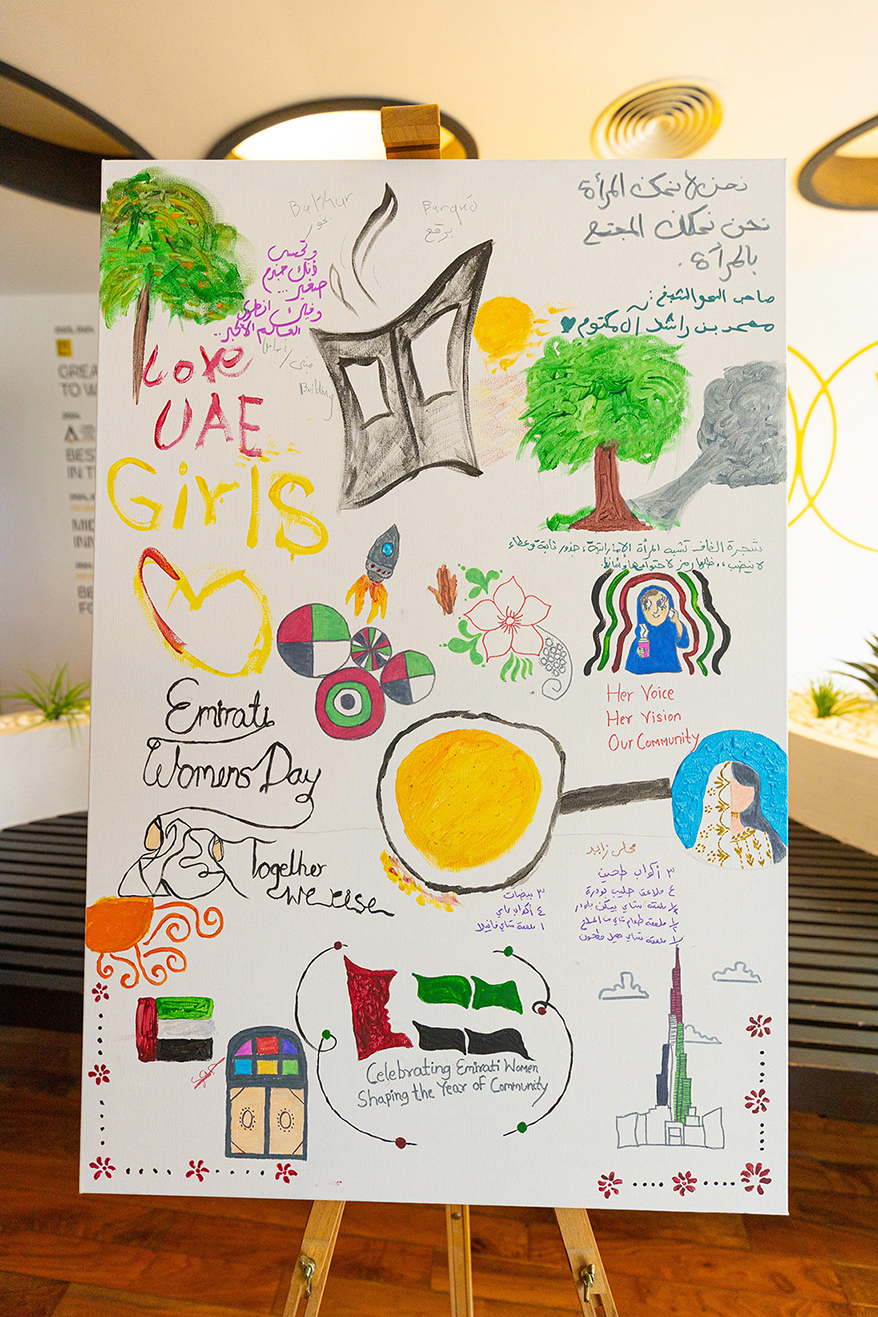 Bukhur
بخور
Burquo
برقع
نحن لا نمكن المرأة
نحن نمكن المجتمع
بالمرأة.
صاحب السمو الشيخ
محمد بن راشد آل مكتوم
وتحسب
أنك جرم
صغير...
وفيك انطوى
العالم الأكبر..
Building
Love
UAE
Girls
شجرة الغاف تشبه المرأة الإماراتية، جذور ثابتة وعطاء
لا ينضب،
Her Voice
Her Vision
Our Community
Emirati
Womens Day
Together
we
محلى زايد
٣ أكواب طحين
٤ ملاعق حليب بودرة
١/٢ ملعقة شاي بيكن باودر
١/٢ ملعقة طعام
١/٢ ملعقة شاي هيل مطحون
٣ بيضات
٤ أكواب ماي
١ ملعقة شاي فانيلا
Celebrating Emirati Women
Shaping the Year of Community
GREA
TO W
BES
IN T
MID
BE
FO